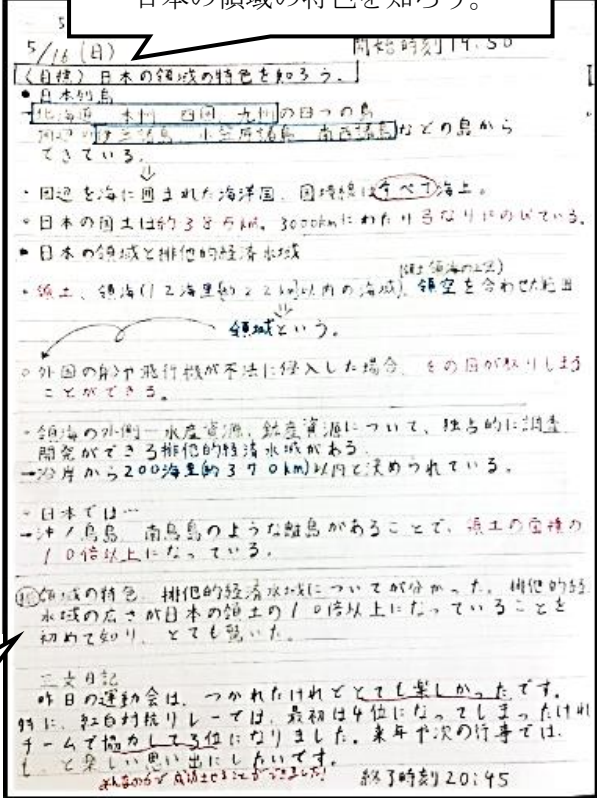 日本の領域の特色を知ろう。
5/16(日) 開始時刻19:50
(目標)日本の領域の特色を知ろう。
・日本列島
北海道 本州 四国 九州の四つの島
周辺の伊豆諸島、小笠原諸島 南西諸島などの島から
できている。
・周辺を海に囲まれた海洋国、国境線はすべて海上。
・日本の国土は約38万km². 3000kmにわたり弓なりにのびている。
・日本の領域と排他的経済水域
・領土、領海(12海里[約22km]以内の海域)、領空を合わせた範囲
領域という。
・外国の船や飛行機が不法に侵入した場合、その国が取りしまう
ことができる。
・領海の外側ー水産資源、鉱産資源について、独占的に調査
開発ができる排他的経済水域がある
→沿岸から200海里(約370km)以内と決められている。
・日本では…
→沖ノ鳥島 南鳥島のような離島があることで、領土の面積の
10倍以上になっている。
領域の特色、排他的経済水域についてが分かった。排他的経
水域の広さが日本の領土の10倍以上になっていることを
初めて知り、とても驚いた。
三文日記
昨日の運動会は、つかれたけれどとても楽しかったです。
特に、紅白対抗リレーでは、最初は4位になってしまったけれ
チームで協力して3位になりました。来年や次の行事では、
もっと楽しい思い出にしたいです。
みんなの力で成功させることができました!
終了時刻20:45